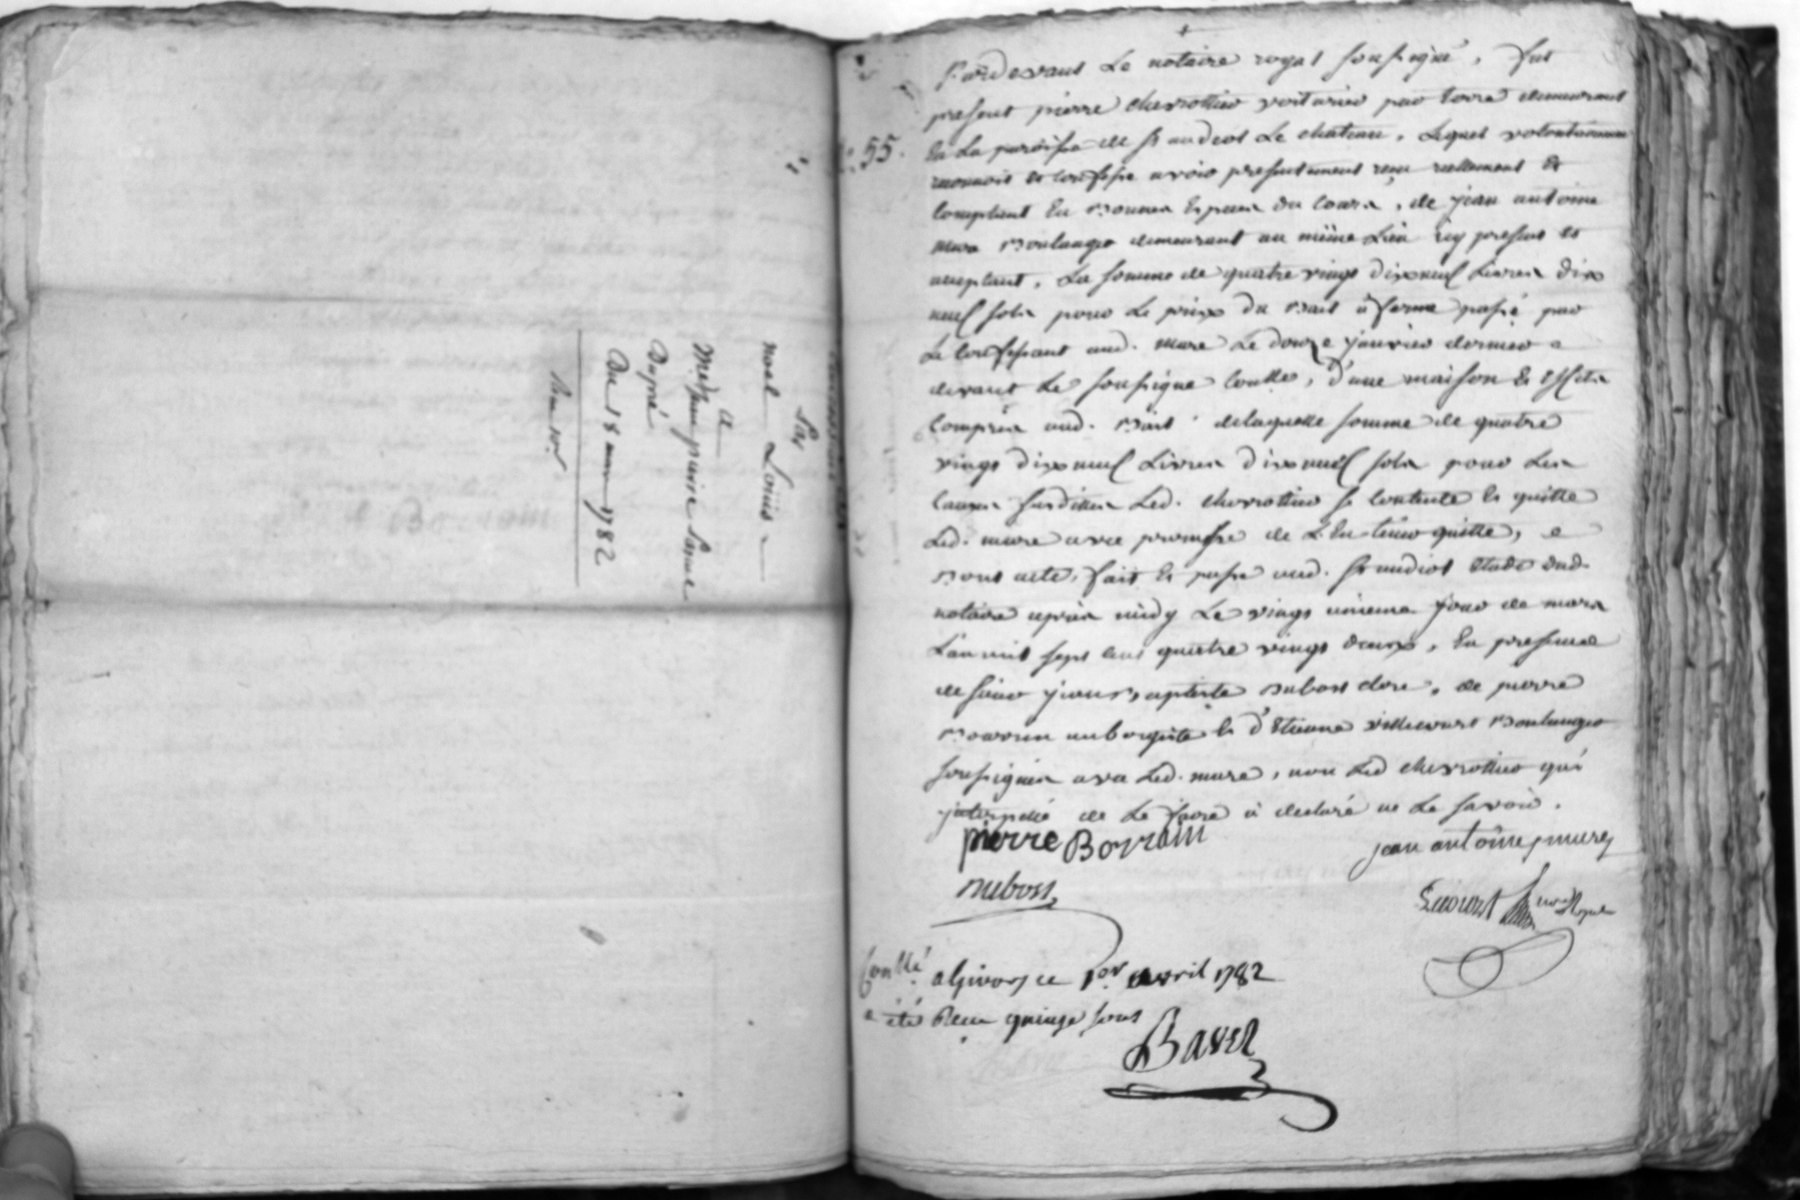 Par
noel Loüis
a
Med. pierre Lame
Dupré
Du 18 mars 1782
55.
Pardevant Le notaire royal soussigné, fut
present pierre chevrottier voiturier par terre demeurant
En La paroisse de st andeol Le chateau, Lequel volontairement
reconnoit et confesse avoir presentement reçu reellement Et
Comptant En Bonnes Espces du Cours, de jean antoine
mure Boulanger demeurant au même Lieu icy present et
acceptant, La somme de quatre vingt dix neuf Livres dix
neuf sols pour Le prix du Bail à ferme passé par
Le Confessant aud. mure Le douze janvier dernier
devant Le soussigné Conllé, d'une maison Et
Compris aud. Bail delaquelle somme de quatre
vingt dix neuf Livres dix neuf sols pour Les
Causes susdittes Led. chevrottier se Contente Et quitte
Led. mure avec promesse de L'En tenir quitte,
Dont acte, fait Et passé aud. st andeol Etude dud.
notaire après midy Le vingt unieme jour de mars
L'an mil sept cent quatre vingt deux, En presence
de sieur jean Baptiste Duboss clerc, de pierre
Boyron aubergiste Et d'Etienne Boulanger
soussignés avec Led. mure, non Led chevrottier qui
interpellé de Le faire à declaré ne Le savoir.
pierre Boyron
jean antoine mure
Duboss
Conllé a Givors ce 1er avril 1782
a été Reçu quinze sous